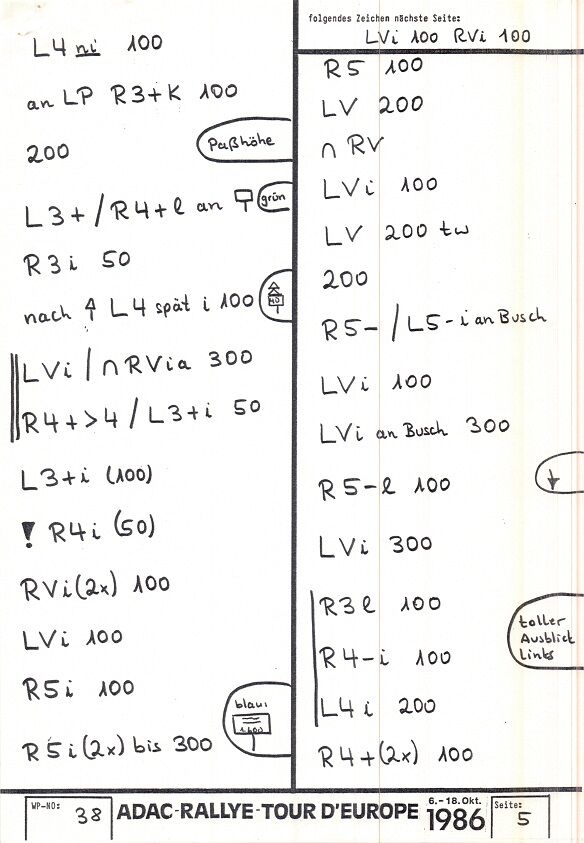 L4 ni 100
an LP R3+K 100
200
Paßhöhe
L3+/R4+l an
grün
R3i 50
nach L4 spät i 100
LVi / ∩ RVia 300
R4+>4 / L3+i 50
L3+i (100)
! R4i (50)
RVi(2x) 100
LVi 100
R5i 100
blau
R5i(2x) bis 300
folgendes Zeichen nächste Seite:
LVi 100 RVi 100
R5 100
LV 200
∩ RV
LVi 100
LV 200 tw
200
R5- / L5-i an Busch
LVi 100
LVi an Busch 300
R5-l 100
LVi 300
R3l 100
toller
Ausblick
Links
R4-i 100
L4i 200
R4+(2x) 100
WP-NO: 38
ADAC-RALLYE-TOUR D'EUROPE
6.-18.Okt.
1986
Seite: 5